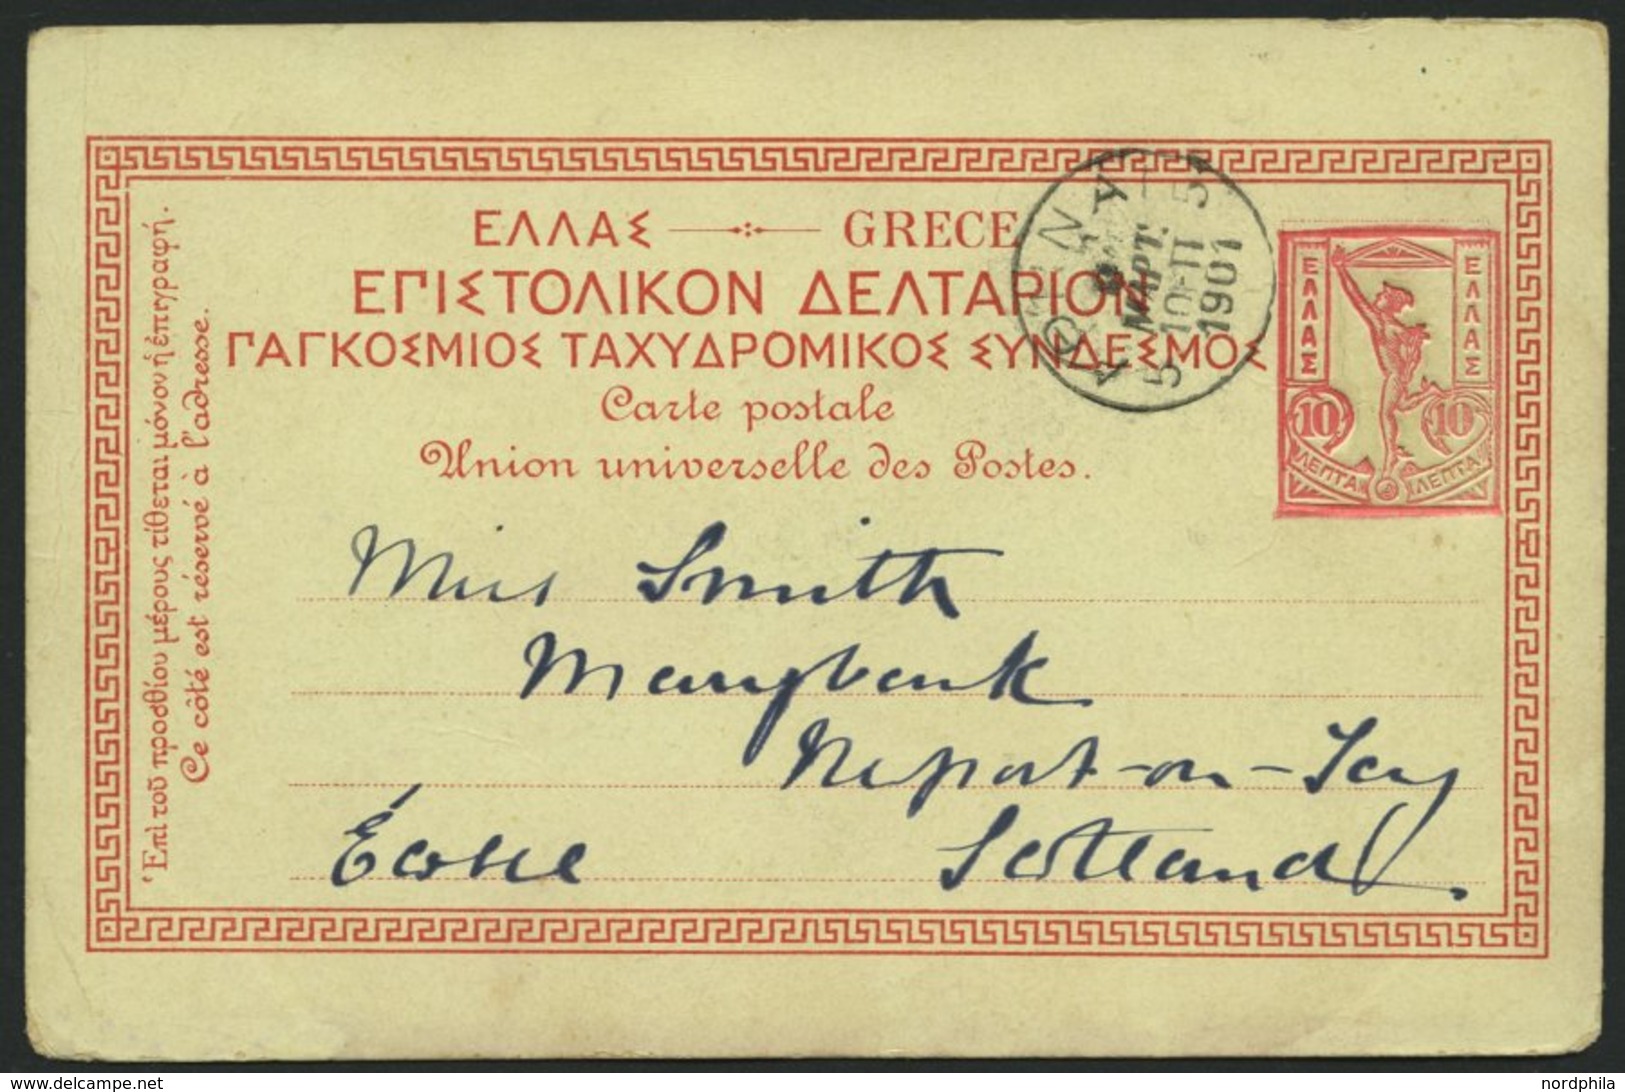 ΕΛΛΑΣ GRECE
ΕΠΙΣΤΟΛΙΚΟΝ ΔΕΛΤΑΡΙΟΝ
ΠΑΓΚΟΣΜΙΟΣ ΤΑΧΥΔΡΟΜΙΚΟΣ ΣΥΝΔΕΣΜΟΣ
Carte postale
Union universelle des Postes.
Ἐπὶ τοῦ προσθίου μέρους τίθεται μόνον ἡ ἐπιγραφή.
Ce côté est réservé à l'adresse.
ΜΑΡΤ.
10
1901
5 5
ΕΛΛΑΣ ΕΛΛΑΣ
10 10
ΛΕΠΤΑ ΛΕΠΤΑ
Miss Smith
Marybank
Newport-on-Tay
Écosse Scotland
nordphila